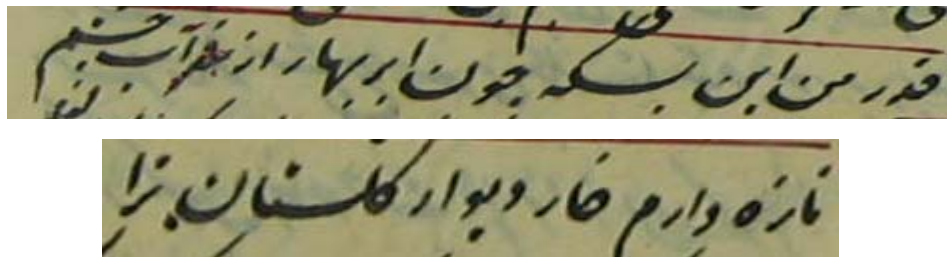 قدر من این بسکه چون ابر بهار از آب چشم
تازه دارم خار دیوار گلستان ترا